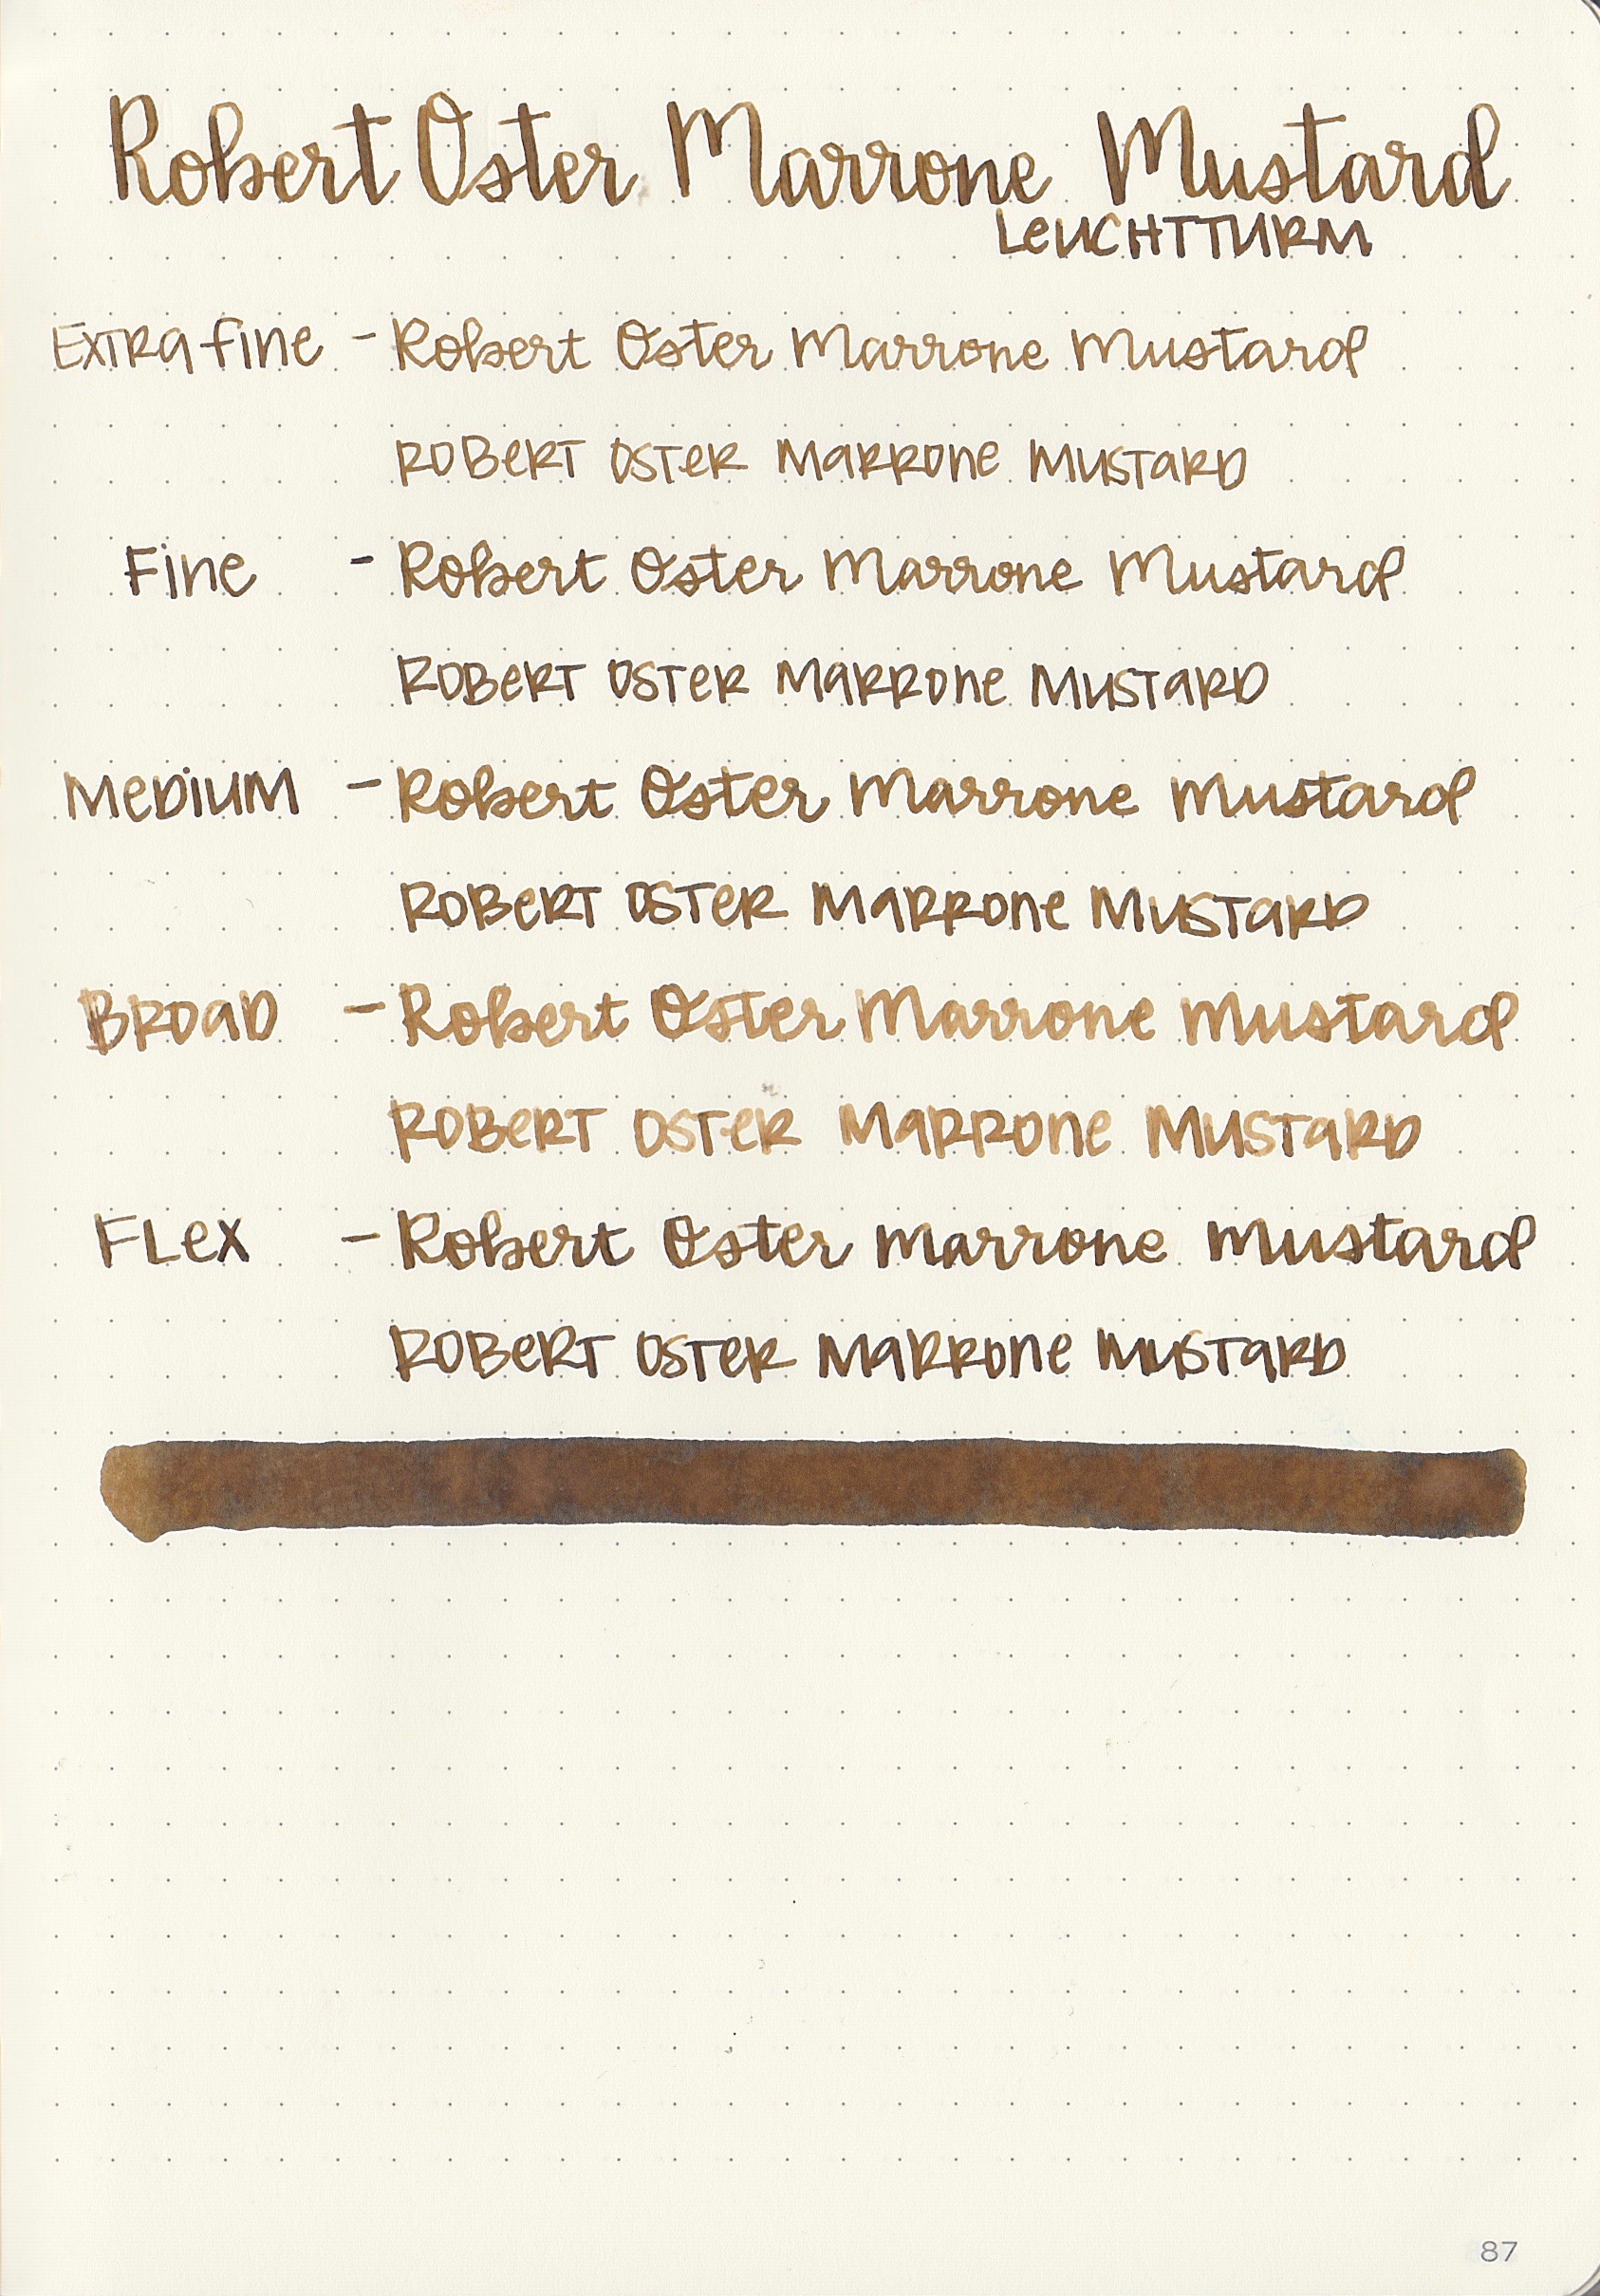 Robert Oster Marrone Mustard
LeUCHTTURM
Extra fine - Robert Oster Marrone Mustard
ROBeRT OSTeR MaRRONe MUSTaRD
Fine - Robert Oster Marrone Mustard
ROBeRT OSTeR MaRRONe MUSTaRD
MeDiUM - Robert Oster Marrone Mustard
ROBeRT OSTeR MaRRONe MUSTaRD
BROaD - Robert Oster Marrone Mustard
ROBeRT OSTeR MaRRONe MUSTaRD
FLex - Robert Oster Marrone Mustard
ROBeRT OSTeR MaRRONe MUSTaRD
87